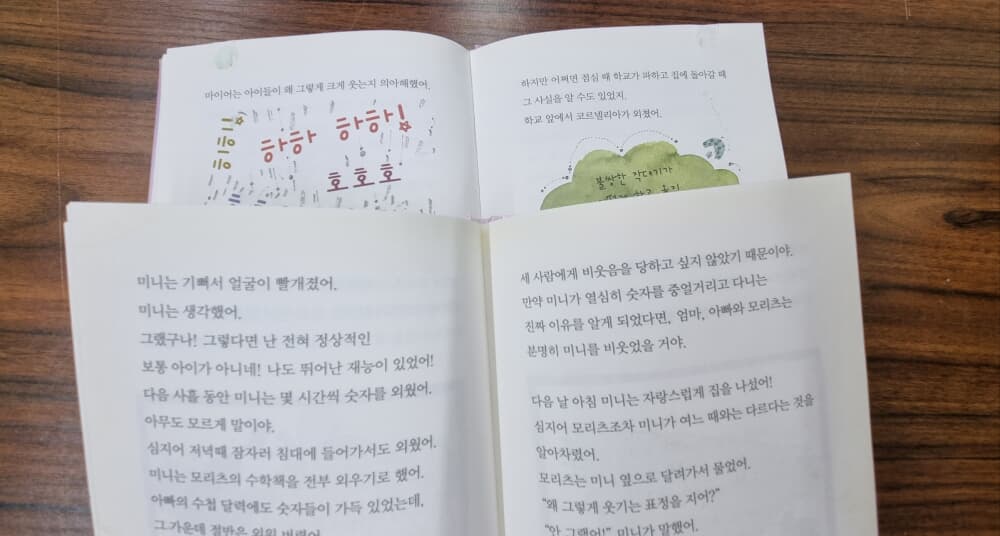 마이어는 아이들이 왜 그렇게 크게 웃는지 의아해했어.
히히!
하하 하하!
호호호
하지만 어쩌면 점심 때 학교가 파하고 집에 돌아갈 때
그 사실을 알 수도 있었지.
학교 앞에서 코르넬리아가 외쳤어.
불쌍한 막대기가
미니는 기뻐서 얼굴이 빨개졌어.
미니는 생각했어.
그랬구나! 그렇다면 난 전혀 정상적인
보통 아이가 아니네! 나도 뛰어난 재능이 있었어!
다음 사흘 동안 미니는 몇 시간씩 숫자를 외웠어.
아무도 모르게 말이야.
심지어 저녁때 잠자러 침대에 들어가서도 외웠어.
미니는 모리츠의 수학책을 전부 외우기로 했어.
아빠의 수첩 달력에도 숫자들이 가득 있었는데,
그 가운데 절반은 외워 버렸어.
세 사람에게 비웃음을 당하고 싶지 않았기 때문이야.
만약 미니가 열심히 숫자를 중얼거리고 다니는
진짜 이유를 알게 되었다면, 엄마, 아빠와 모리츠는
분명히 미니를 비웃었을 거야.
다음 날 아침 미니는 자랑스럽게 집을 나섰어!
심지어 모리츠조차 미니가 여느 때와는 다르다는 것을
알아차렸어.
모리츠는 미니 옆으로 달려가서 물었어.
"왜 그렇게 웃기는 표정을 지어?"
"안 그랬어!" 미니가 말했어.